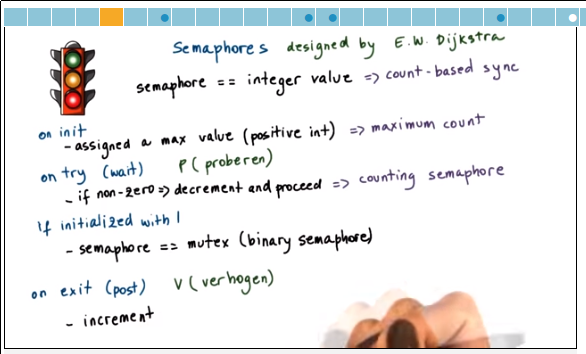 Semaphores designed by E.W. Dijkstra
semaphore == integer value => count-based sync
on init
- assigned a max value (positive int) => maximum count
on try (wait) P (proberen)
- if non-zero => decrement and proceed => counting semaphore
If initialized with 1
- semaphore == mutex (binary semaphore)
on exit (post) V (verhogen)
- increment